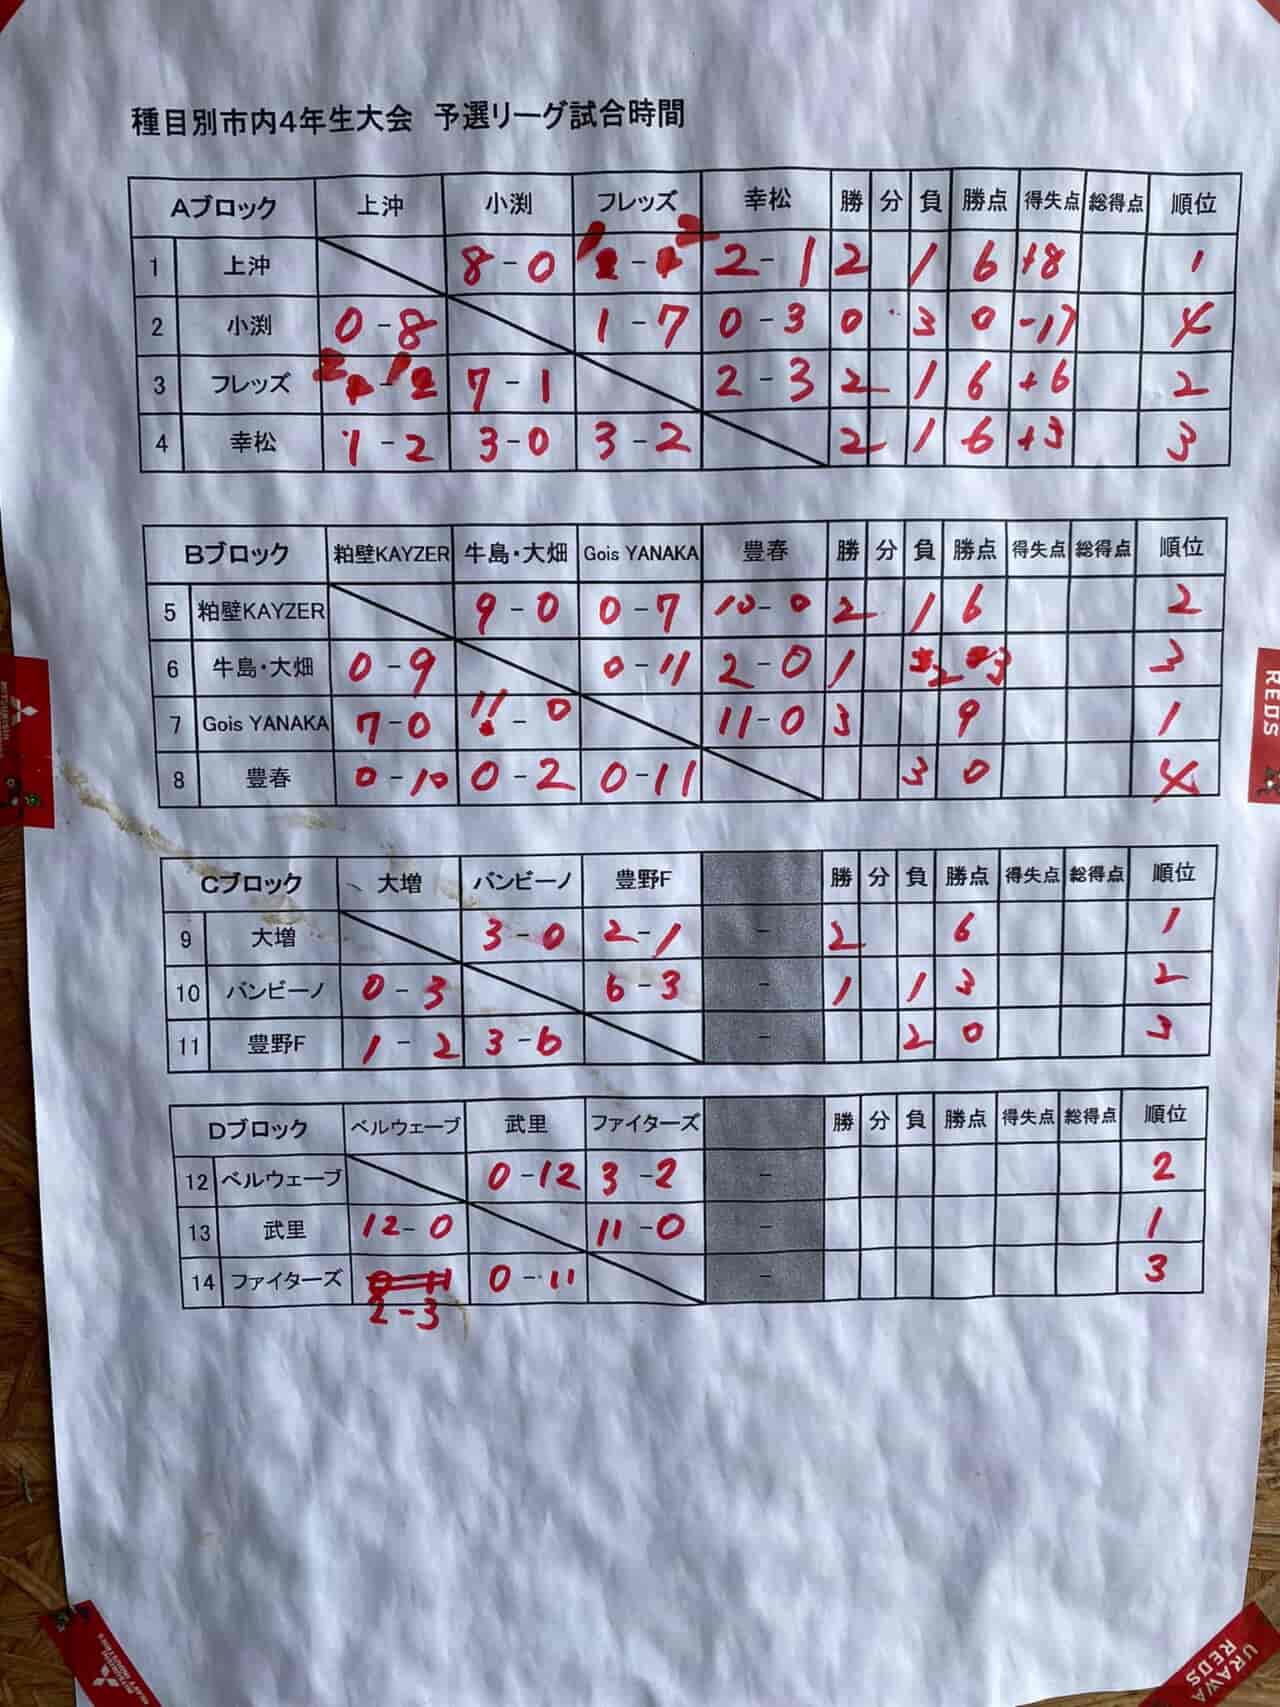 種目別市内4年生大会 予選リーグ試合時間
Aブロック 上沖 小渕 フレッズ 幸松 勝 分 負 勝点 得失点 総得点 順位
1 上沖 8-0 1-2 2-1 2 1 6 +8 1
2 小渕 0-8 1-7 0-3 0 3 0 -17 4
3 フレッズ 2-1 7-1 2-3 2 1 6 +6 2
4 幸松 1-2 3-0 3-2 2 1 6 +3 3
Bブロック 粕壁KAYZER 牛島・大畑 Gois YANAKA 豊春 勝 分 負 勝点 得失点 総得点 順位
5 粕壁KAYZER 9-0 0-7 10-0 2 1 6 2
6 牛島・大畑 0-9 0-11 2-0 1 2 3 3
7 Gois YANAKA 7-0 11-0 11-0 3 9 1
8 豊春 0-10 0-2 0-11 3 0 4
Cブロック 大増 バンビーノ 豊野F 勝 分 負 勝点 得失点 総得点 順位
9 大増 3-0 2-1 - 2 6 1
10 バンビーノ 0-3 6-3 - 1 1 3 2
11 豊野F 1-2 3-6 - 2 0 3
Dブロック ベルウェーブ 武里 ファイターズ 勝 分 負 勝点 得失点 総得点 順位
12 ベルウェーブ 0-12 3-2 - 2
13 武里 12-0 11-0 - 1
14 ファイターズ 0-11 - 3
2-3
REDS
URAWA
REDS